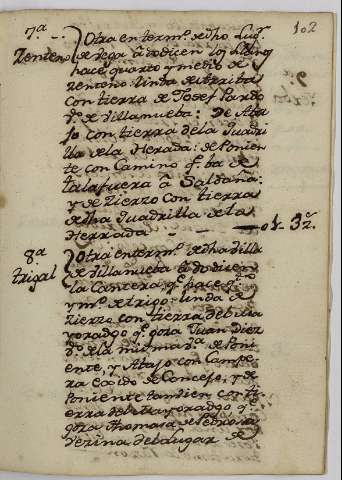 102
7ª Otra en termº. de dho Lug.
Zenteno de Vega â do dicen los llanos
hace quarto y medio de
zenteno linda de Arriba
con tierra de Josef Pardo
vº. de Villanueba: De Aba
jo con tierra de la Quadri
lla de la Herada: de Ponien
te con Camino qᵉ. ba de
talafuera â Saldaña:
y de Zierzo con tierra
de dha Quadrilla de la
Herrada
8ª Otra en termº. de dha Villa
trigal de Villanueba do dicen
la Cantera qᵉ. hace
y mº. de trigo: linda de
Zierzo con tierra del ma
yoradgo qᵉ. goza Juan Diez
vº. de la misma vª. de Poni
ente, y Abajo con Campe
ra Ca ido de Concejo, y de
Poniente tambien con ti
erra del mayoradgo qᵉ.
goza Thomasa de Pedrosa
Vezina del Lugar de